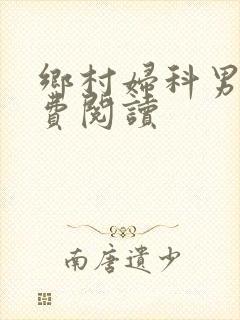 鄉村婦科男
費閱讀
南唐遺少